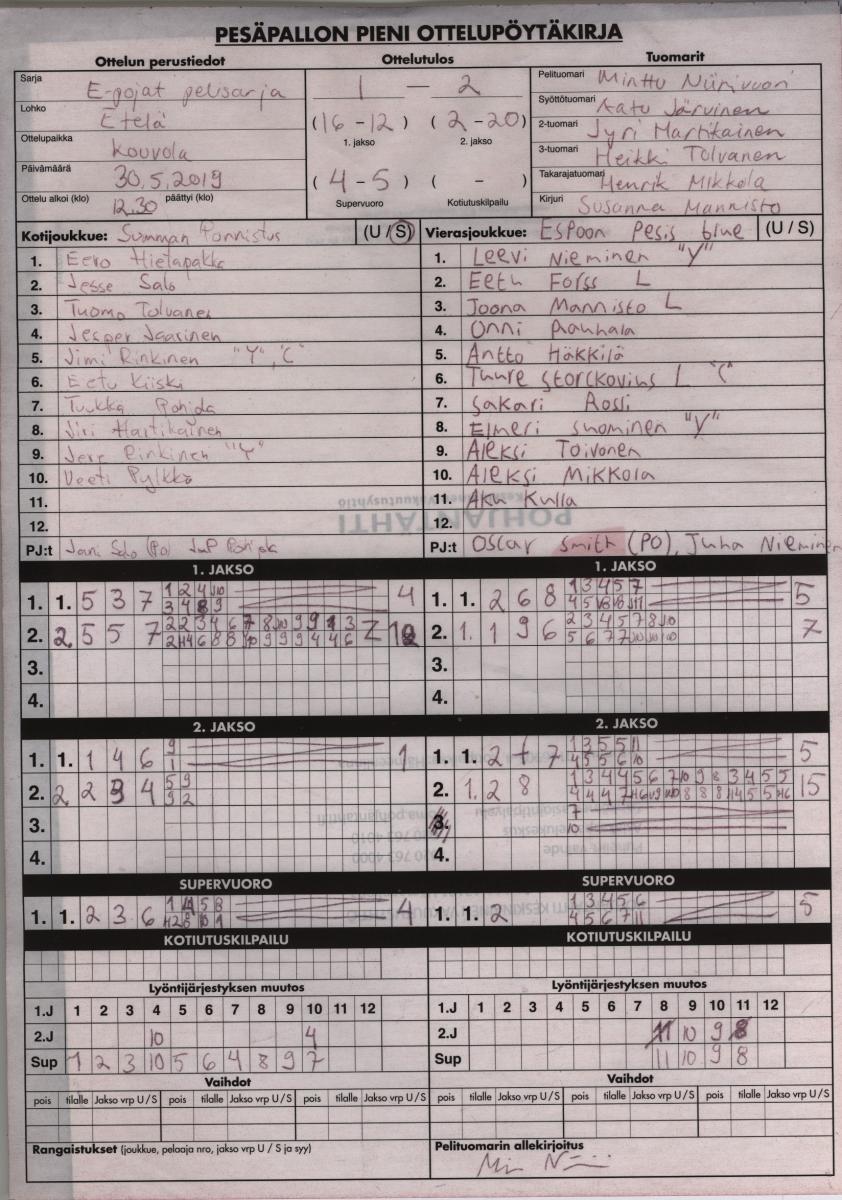 PESÄPALLON PIENI OTTELUPÖYTÄKIRJA
Ottelun perustiedot
Sarja E-pojat pelisarja
Lohko Etelä
Ottelupaikka Kouvola
Päivämäärä 30.5.2019
Ottelu alkoi (klo) 12.30 päättyi (klo)
Ottelutulos
1 — 2
(16 - 12) (2 - 20)
1. jakso 2. jakso
(4 - 5) ( - )
Supervuoro Kotiutuskilpailu
Tuomarit
Pelituomari Minttu Niinivuori
Syöttötuomari Aatu Järvinen
2-tuomari Jyri Martikainen
3-tuomari Heikki Tolvanen
Takarajatuomari Henrik Mikkola
Kirjuri Susanna Mannisto
Kotijoukkue: Summan Ponnistus (U / S)
1. Eero Hietapakka
2. Jesse Salo
3. Tuomo Tolvanen
4. Jesper Jaarinen
5. Jimi Rinkinen "Y", "C"
6. Eetu Kiiski
7. Tuukka Pohjola
8. Jiri Hartikainen
9. Jere Rinkinen "Y"
10. Veeti Pylkkö
11.
12.
PJ:t Jani Salo (PO)
Vierasjoukkue: Espoon Pesis blue (U / S)
1. Leevi Nieminen "Y"
2. Eetu Forss L
3. Joona Mannisto L
4. Onni Rauhala
5. Antto Häkkilä
6. Tuure Storckovius L "C"
7. Sakari Rossi
8. Elmeri Suominen "V"
9. Aleksi Toivonen
10. Aleksi Mikkola
11. Aku Kulla
12.
PJ:t Oscar Smith (PO), Juha Nieminen
POHJANTAHTI
1. JAKSO
1. 1. 5 3 7 4
2. 2. 5 5 7
3.
4.
1. JAKSO
1. 1. 2 6 8 5
2. 1. 1 9 6 7
3.
4.
2. JAKSO
1. 1. 1 4 6 9 1 1
2. 2 2 3 4 5 9 9 2
3.
4.
2. JAKSO
1. 1. 2 7 7 5
2. 1. 2 8 15
3.
4.
SUPERVUORO
1. 1. 2 3 6 4
SUPERVUORO
1. 1. 2 1 3 4 5 6 4 5 6 7 11 5
KOTIUTUSKILPAILU
KOTIUTUSKILPAILU
Lyöntijärjestyksen muutos
1.J 1 2 3 4 5 6 7 8 9 10 11 12
2.J 10 4
Sup 1 2 3 10 5 6 4 8 9 7
Lyöntijärjestyksen muutos
1.J 1 2 3 4 5 6 7 8 9 10 11 12
2.J 11 10 9 8
Sup 11 10 9 8
Vaihdot
pois tilalle Jakso vrp U / S pois tilalle Jakso vrp U / S pois tilalle Jakso vrp U / S
Vaihdot
pois tilalle Jakso vrp U / S pois tilalle Jakso vrp U / S pois tilalle Jakso vrp U / S
Rangaistukset (joukkue, pelaaja nro, jakso vrp U / S ja syy)
Pelituomarin allekirjoitus